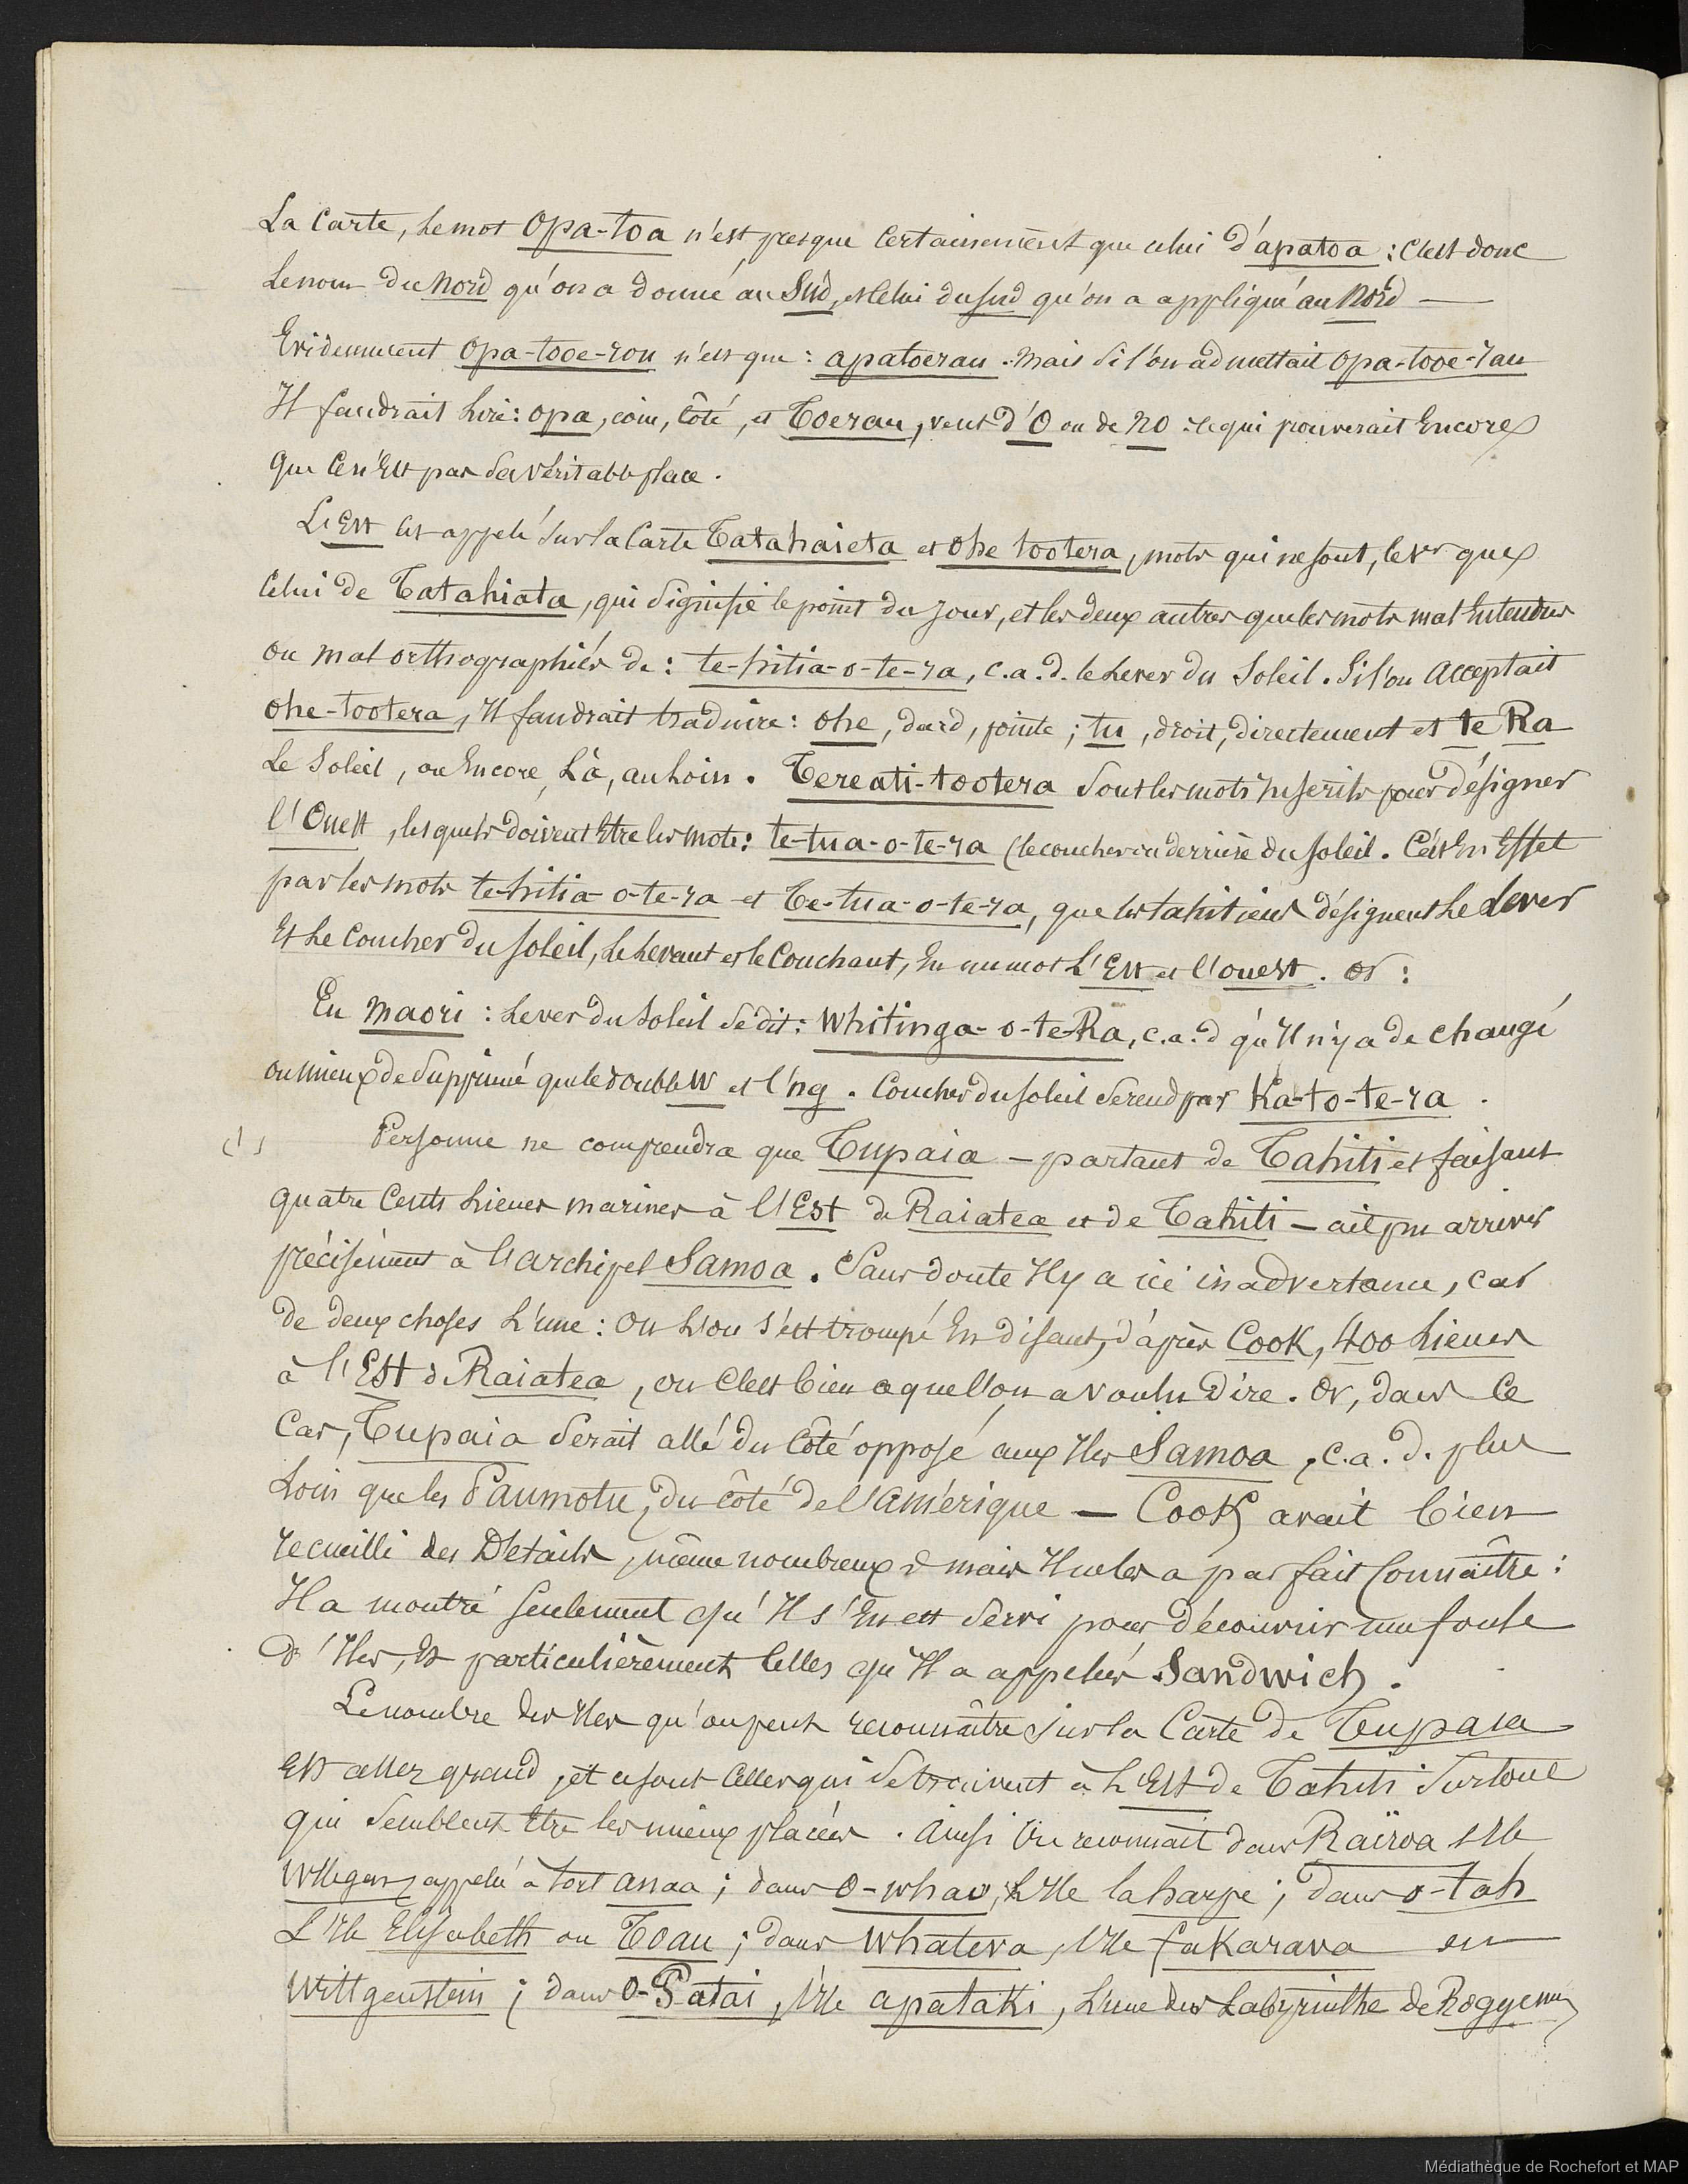 La Carte, le mot Opa-toa n'est presque certainement que celui d'apatoa : c'est donc
le nom du nord qu'on a donné au Sud, et celui du sud qu'on a appliqué au Nord —
Evidemment opa-tooe-rou n'est que : apatoerau . Mais si l'on admettait opa-tooe-rau
Il faudrait lire : opa, coin, côté, et Toerau, vent d'O ou de NO : ce qui prouverait Encore
que ce n'Est pas sa véritable place .
L'Est est appelé sur la Carte Tatahaieta et ohe tootera, mots qui ne sont, le 1er que
Celui de Tatahiata, qui signifie le point du jour, et les deux autres que les mots mal Entendus
ou mal orthographiés de : te-hitia-o-te-ra, c.a.d. le Lever du Soleil . Si l'on acceptait
ohe-tootera, Il faudrait traduire : ohe, dard, pointe ; tu, droit, directement et te Ra
Le Soleil, ou Encore, Là, au Loin . Tereati-tootera sont les mots Inscrits pour désigner
l'Ouest, lesquels doivent Etre les mots : te-tua-o-te-ra (le coucher ou derrière du soleil . C'est En Effet
par les mots te-hitia-o-te-ra et Te-tua-o-te-ra, que les tahitiens désignent Le Lever
Et Le Coucher du soleil, Le Levant et le Couchant, En un mot L'Est et l'ouest . Or :
En maori : Lever du Soleil se dit : Whitinga-o-te-Ra, c.a.d qu'Il n'y a de changé
ou mieux de Supprimé que le double W et l'ng . Coucher du soleil se rend par Ka-to-te-ra .
(1) Personne ne comprendra que Tupaia — partant de Tahiti et faisant
quatre Cents Lieues marines à l'Est de Raiatea et de Tahiti — ait pu arriver
précisément à l'archipel Samoa . Sans doute Il y a ici inadvertance, car
de deux choses L'une : ou L'on s'est trompé En disant, d'après Cook, 400 Lieues
à l'Est de Raiatea, ou C'est bien ce que l'on a voulu dire . Or, dans Ce
Cas, Tupaia serait allé du Côté opposé aux Iles Samoa, c.a.d. plus
Loin que les Paumotu, du côté de l'amérique — Cook avait bien
recueilli des Détails, même nombreux mais Il ne les a pas fait Connaître :
Il a montré seulement qu'Il s'En est servi pour découvrir une foule
d'Iles, Et particulièrement Celles qu'Il a appelées Sandwich .
Le nombre des Iles qu'on peut reconnaître sur la Carte de Tupaia
Est assez grand, et ce sont Celles qui se trouvent à L'Est de Tahiti surtout
qui semblent Etre les mieux placées . Ainsi On reconnait dans Raïroa l'Ile
Wliegen, appelée à tort anaa ; dans O-whao, L'Ile la harpe ; dans o-tah
L'Ile Elisabeth ou Toau ; dans Whateva, l'Ile fakarava ou
Wittgenstein ; dans O-Patai, l'Ile apataki, L'une des Labyrinthe de Roggewen,
Médiathèque de Rochefort et MAP